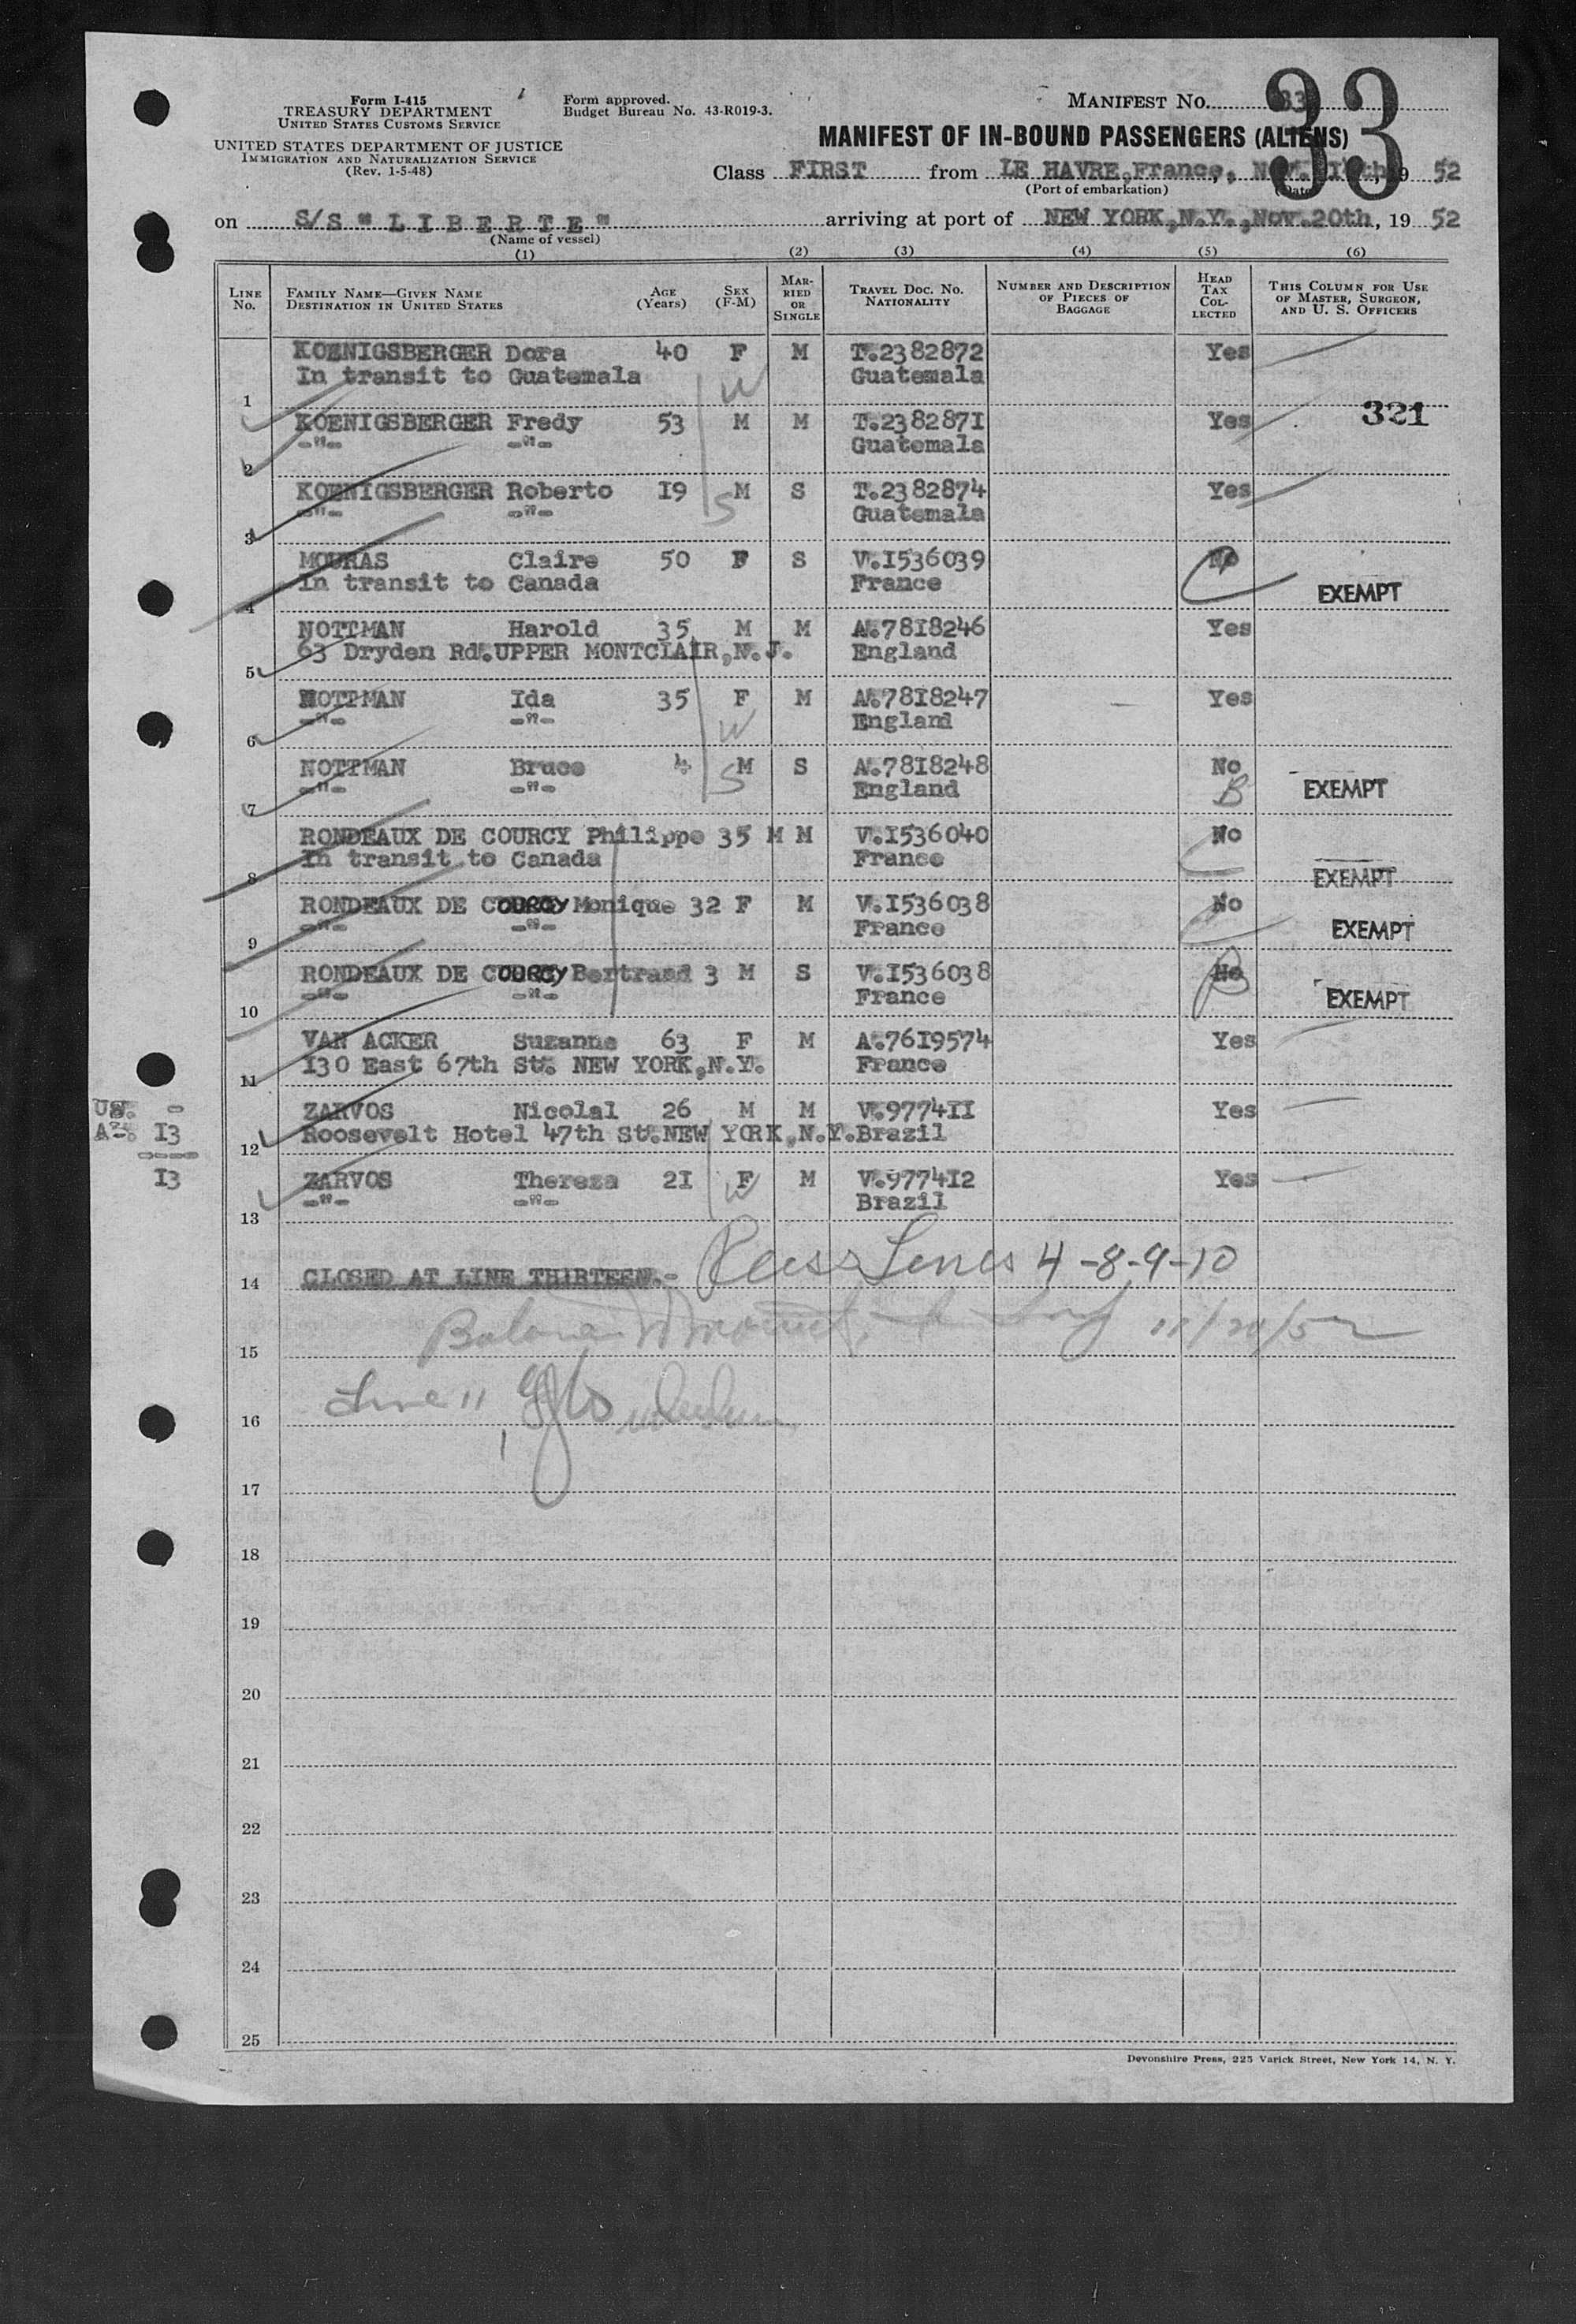 33
Form I-415
TREASURY DEPARTMENT
UNITED STATES CUSTOMS SERVICE
UNITED STATES DEPARTMENT OF JUSTICE
IMMIGRATION AND NATURALIZATION SERVICE
(Rev. 1-5-48)
Form approved.
Budget Bureau No. 43-R019-3.
MANIFEST NO. 33
MANIFEST OF IN-BOUND PASSENGERS (ALIENS)
Class FIRST from LE HAVRE,France, 19 52
(Port of embarkation) (Date)
on S/S "LIBERTE" arriving at port of NEW YORK,N.Y.,Nov.20th, 19 52
(Name of vessel)
(1) (2) (3) (4) (5) (6)
LINE No. FAMILY NAME—GIVEN NAME DESTINATION IN UNITED STATES AGE (Years) SEX (F-M) MARRIED OR SINGLE TRAVEL DOC. NO. NATIONALITY NUMBER AND DESCRIPTION OF PIECES OF BAGGAGE HEAD TAX COLLECTED THIS COLUMN FOR USE OF MASTER, SURGEON, AND U. S. OFFICERS
KOENIGSBERGER Dora 40 F M T.2382872 Yes
In transit to Guatemala Guatemala
1 W
KOENIGSBERGER Fredy 53 M M T.2382871 Yes 321
-"- -"- Guatemala
2
KOENIGSBERGER Roberto 19 M S T.2382874 Yes
-"- -"- S Guatemala
3
MOURAS Claire 50 F S V.1536039 No
In transit to Canada France EXEMPT
4
NOTTMAN Harold 35 M M A.7818246 Yes
63 Dryden Rd.UPPER MONTCLAIR,N.J. England
5
NOTTMAN Ida 35 F M A.7818247 Yes
-"- -"- W England
6
NOTTMAN Bruce 4 M S A.7818248 No
-"- -"- S England B EXEMPT
7
RONDEAUX DE COURCY Philippe 35 M M V.1536040 No
In transit to Canada France EXEMPT
8
RONDEAUX DE COURCY Monique 32 F M V.1536038 No
-"- -"- France EXEMPT
9
RONDEAUX DE COURCY Bertrand 3 M S V.1536038 No
-"- -"- France B EXEMPT
10
VAN ACKER Suzanne 63 F M A.7619574 Yes
130 East 67th St. NEW YORK,N.Y. France
11
US. - ZARVOS Nicolal 26 M M V.977411 Yes
A-: 13 Roosevelt Hotel 47th St.NEW YORK,N.Y.Brazil
12
13 ZARVOS Thereza 21 F M V.977412 Yes
-"- -"- W Brazil
13
14 CLOSED AT LINE THIRTEEN.- Lines 4-8-9-10
15 11/20/52
16 Line 11
17
18
19
20
21
22
23
24
25
Devonshire Press, 225 Varick Street, New York 14, N. Y.